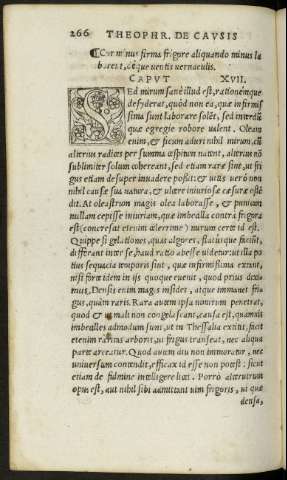 266 THEOPHR. DE CAVSIS
Cur minus firma frigore aliquando minus la
borent, déque uentis uernaculis.
CAPVT XVII.
SEd mirum sanè illud est, rationémque
desyderat, quòd non ea, quæ infirmis
sima sunt laborare solet, sed interdū
quæ egregie robore ualent. Oleam
enim, & ficum aduri nihil mirum, cū
alterius radices per summa cespitum natent, alterius nō
sublimiter solum cohereant, sed etiam raræ sint, ut fri
gus etiam de super inuadere possit: & uitis uerò non
nihil causæ sua natura, & ulteræ iniuriosæ cæsuræ esse
dit. At oleastrum magis olea laborasse, & punicam
nullam cepisse iniuriam, quæ imbecilla contra frigora
est (concrescat etenim celerrime) mirum certe id est.
Quippe si gelationes, quas algores, flatusque faciūt,
differant inter se, haud ratio abesse uidetur: ut illa po
tius sequacia temporis sint, quæ infirmissima extent,
nisi fortè idem in ijs quoque eueniat, quod prius dixi
mus. Densis enim magis insidet, atque immanet fri
gus, quàm raris. Rara autem ipsa nonnum penetrat,
quod & mali non congelascant, causa est, quamuis
imbecilles admodum sunt, ut in Thessalia extitit, sicut
etenim rarius arboris, ut frigus transeat, nec aliqua
parte arceatur. Quod autem diu non immoratur, nec
uniuersum contendit, efficax id esse non potest: sicut
etiam de fulmine intelligere licet. Porrò alterutrum
opus est, aut nihil sibi admittant uim frigoris, ut quæ
densa,